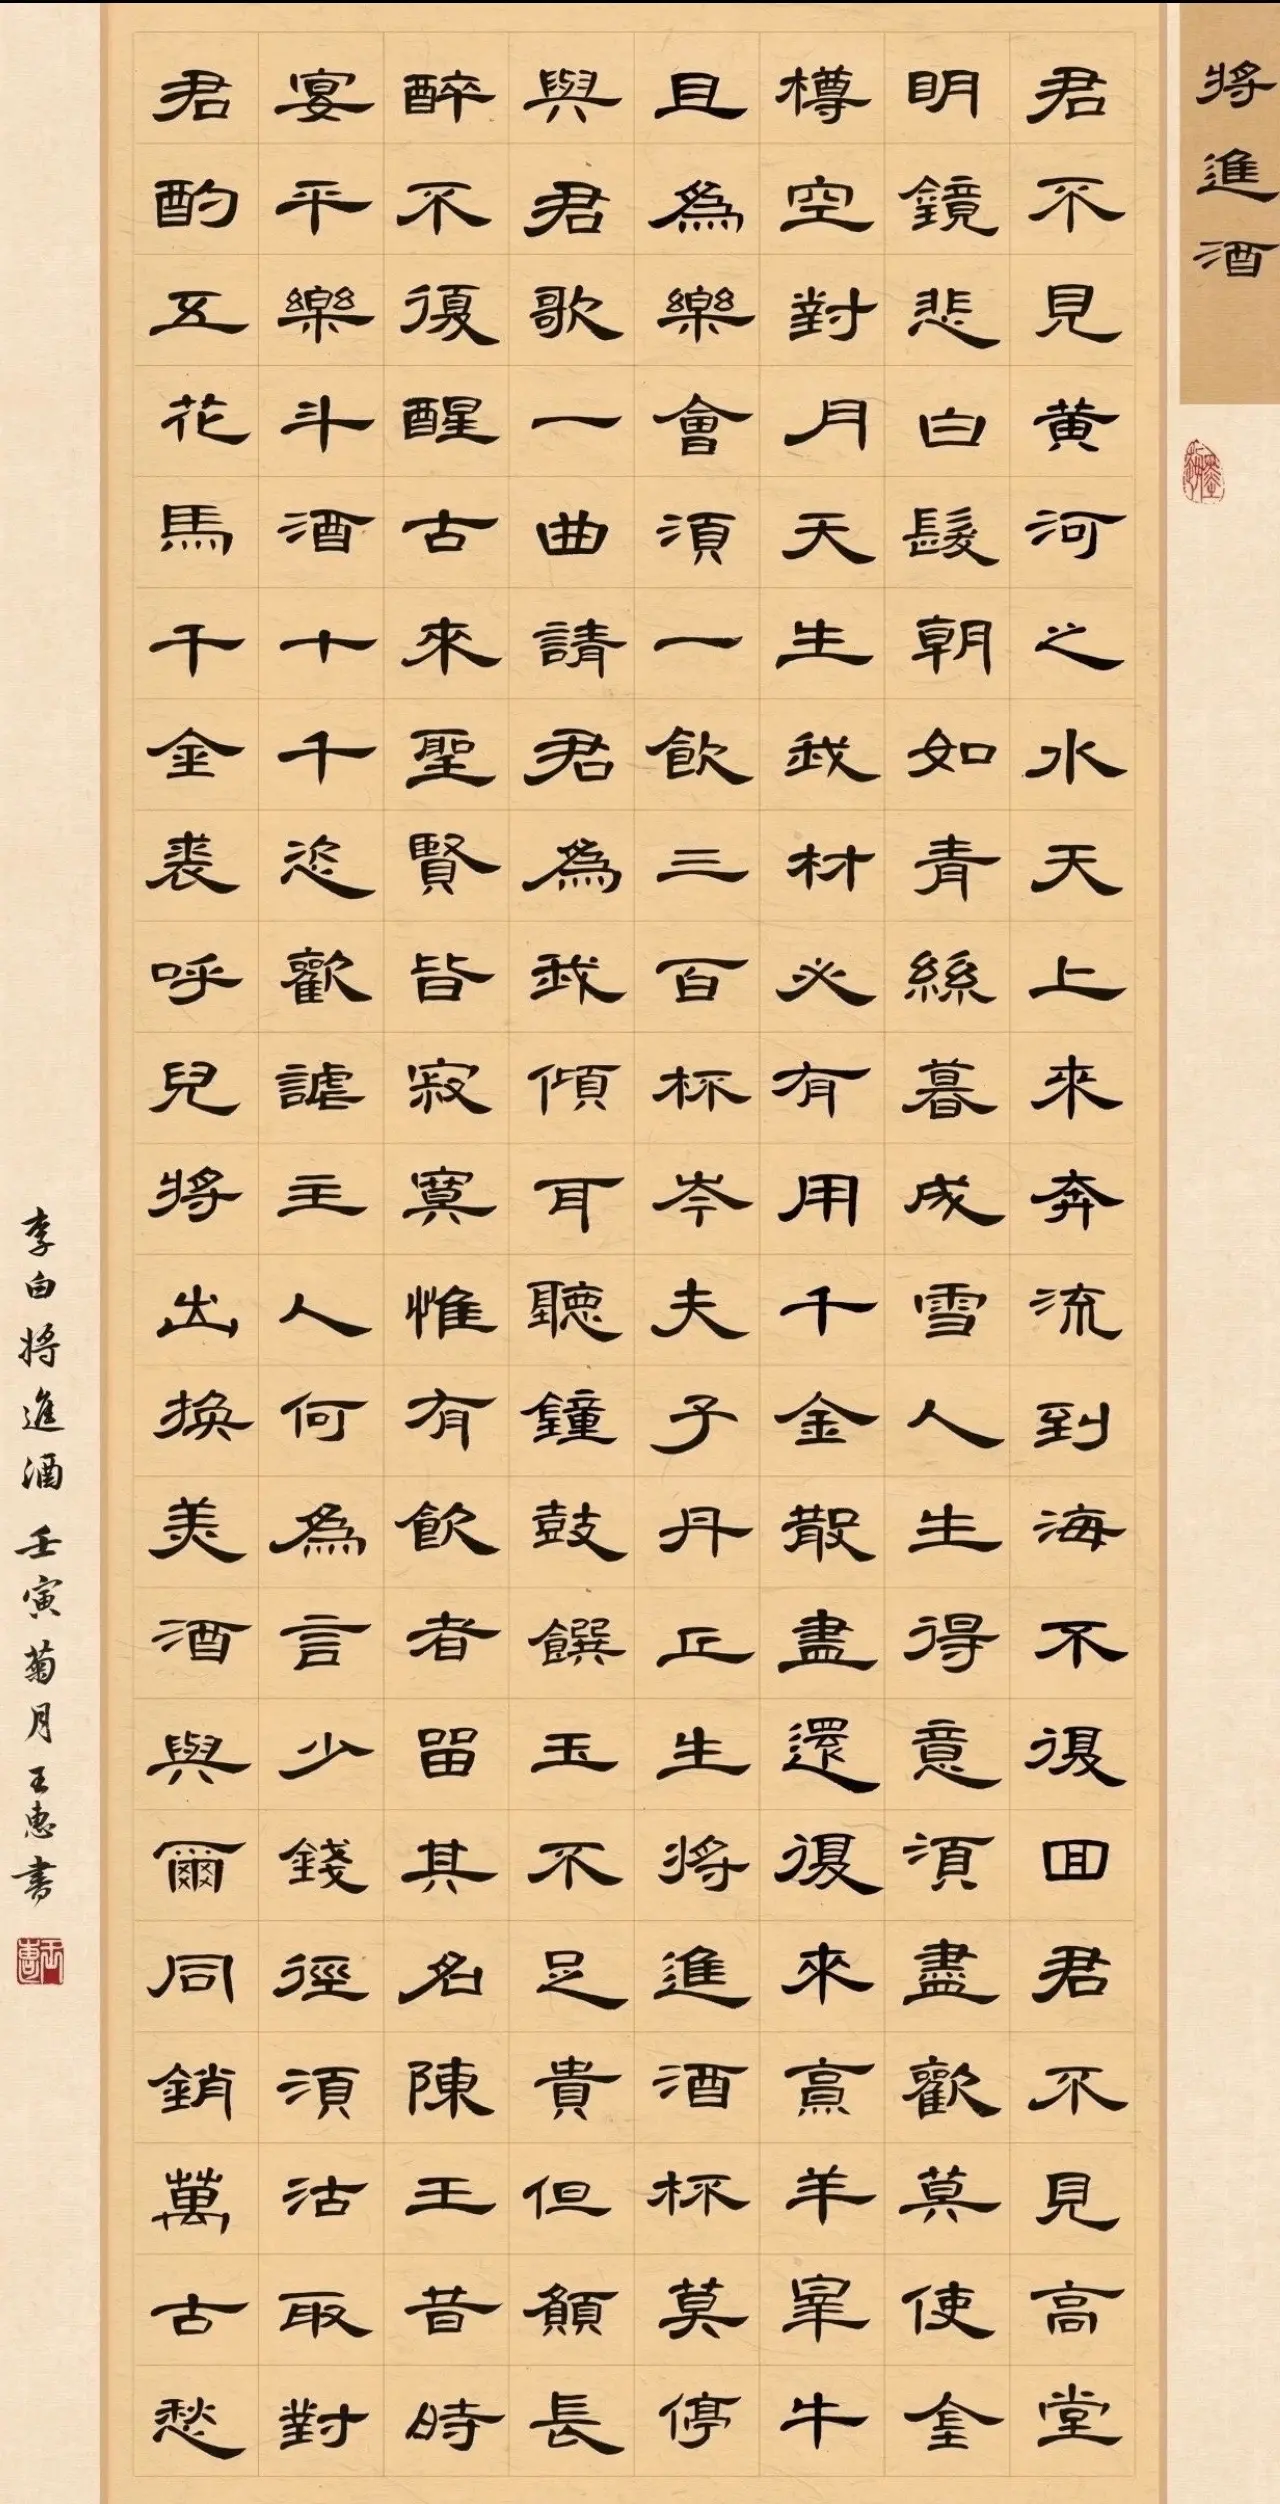 將進酒
君不見黄河之水天上來奔流到海不復回君不見高堂
明鏡悲白髮朝如青絲暮成雪人生得意須盡歡莫使金
樽空對月天生我材必有用千金散盡還復來烹羊宰牛
且為樂會須一飲三百杯岑夫子丹丘生將進酒杯莫停
與君歌一曲請君為我傾耳聽鐘鼓饌玉不足貴但願長
醉不復醒古來聖賢皆寂寞惟有飲者留其名陳王昔時
宴平樂斗酒十千恣歡謔主人何為言少錢徑須沽取對
君酌五花馬千金裘呼兒將出換美酒與爾同銷萬古愁
李白將進酒壬寅菊月王惠書